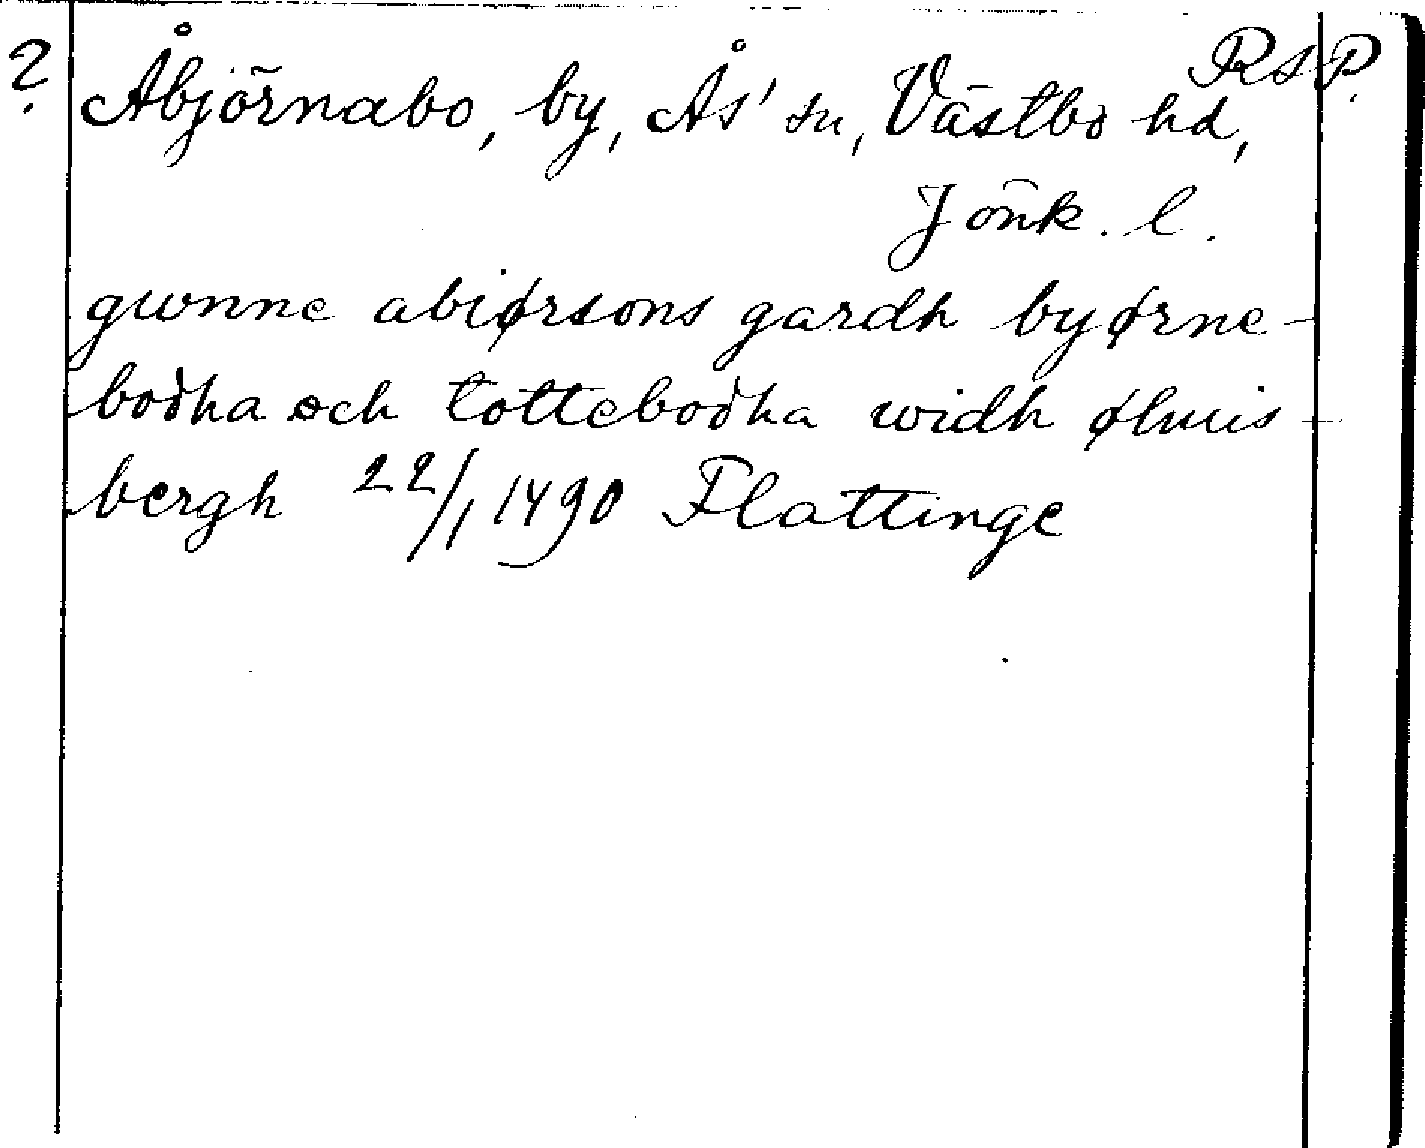 RsP.
? Åbjörnabo, by, Ås' sn, Västbo hd,
Jönk. l.
gwnne abiørsons gardh byørne-
bodha och tottebodha widh ølmis-
bergh 22/1 1490 Flattinge